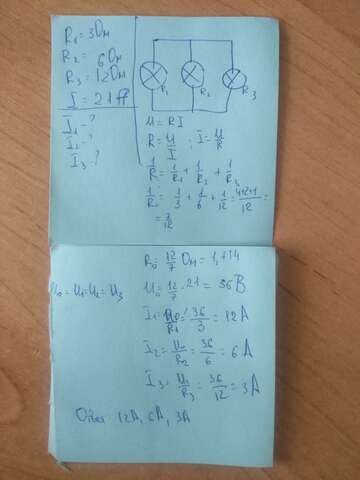 R₁ = 3 Ом
R₂ = 6 Ом
R₃ = 12 Ом
I = 21 A
I₁ - ?
I₂ - ?
I₃ - ?
R₁ R₂ R₃
U = RI
R = U/I ; I = U/R
1/R = 1/R₁ + 1/R₂ + 1/R₃
1/R = 1/3 + 1/6 + 1/12 = 4+2+1/12 =
= 7/12
R₀ = 12/7 Ом = 1,714
U₀ = U₁ = U₂ = U₃
U₀ = 12/7 · 21 = 36 В
I₁ = U₀/R₁ = 36/3 = 12 A
I₂ = U₀/R₂ = 36/6 = 6 A
I₃ = U₀/R₃ = 36/12 = 3 A
Ответ 12A, 6A, 3A